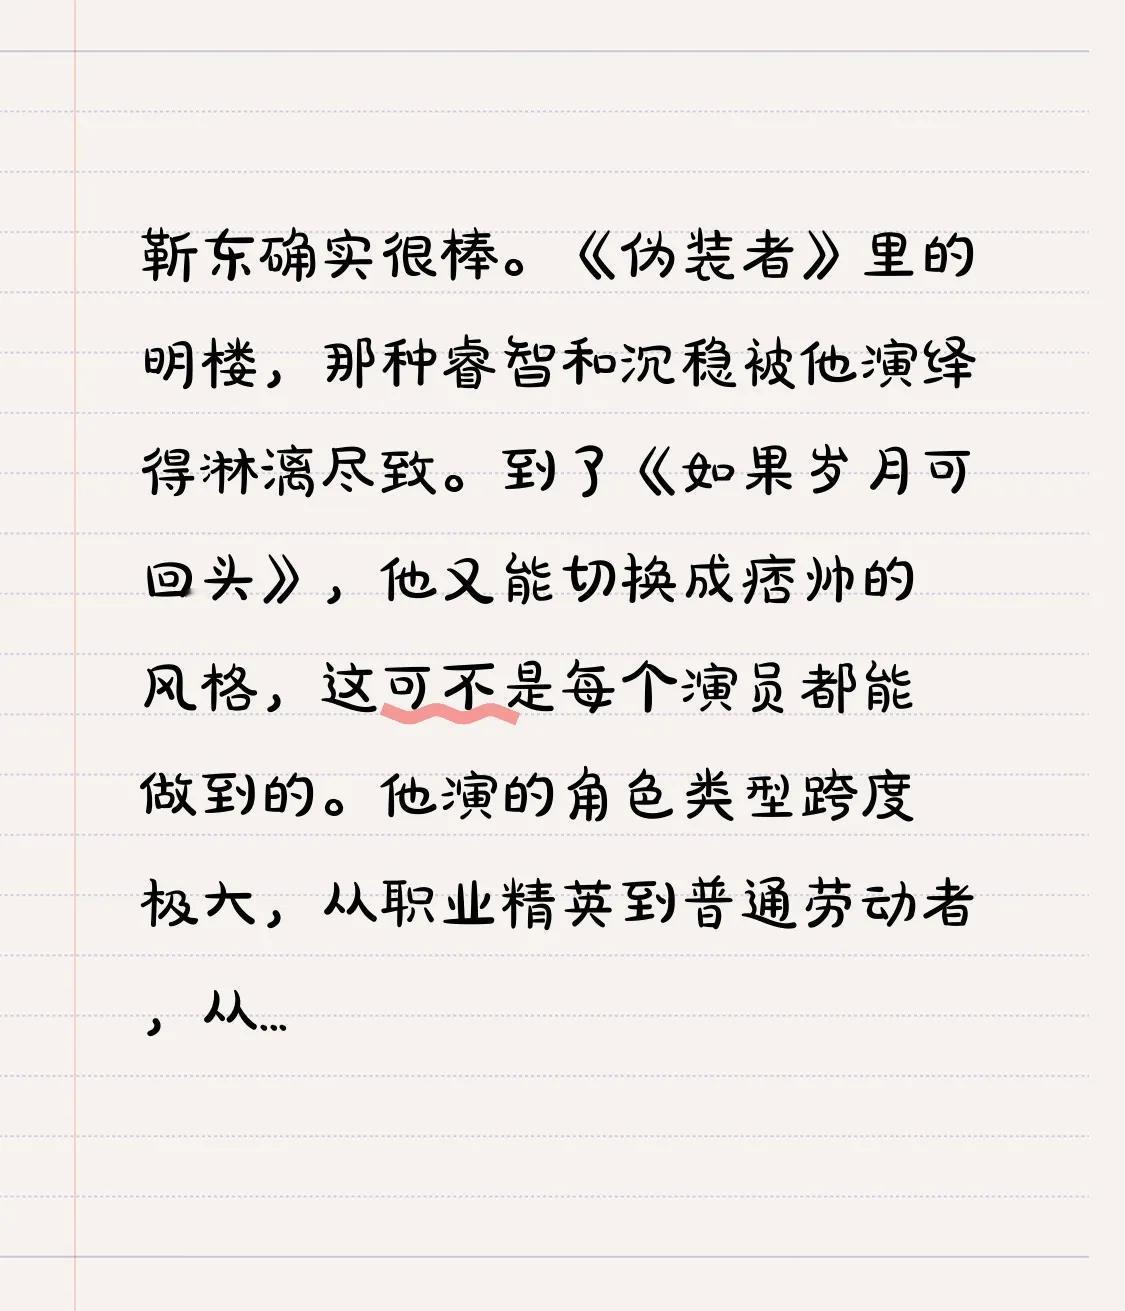 靳东确实很棒。《伪装者》里的
明楼，那种睿智和沉稳被他演绎
得淋漓尽致。到了《如果岁月可
回头》，他又能切换成痞帅的
风格，这可不是每个演员都能
做到的。他演的角色类型跨度
极大，从职业精英到普通劳动者
，从...